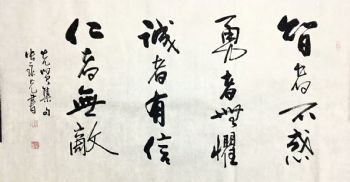 智者不惑
勇者無懼
誠者有信
仁者無敵
先賢集句